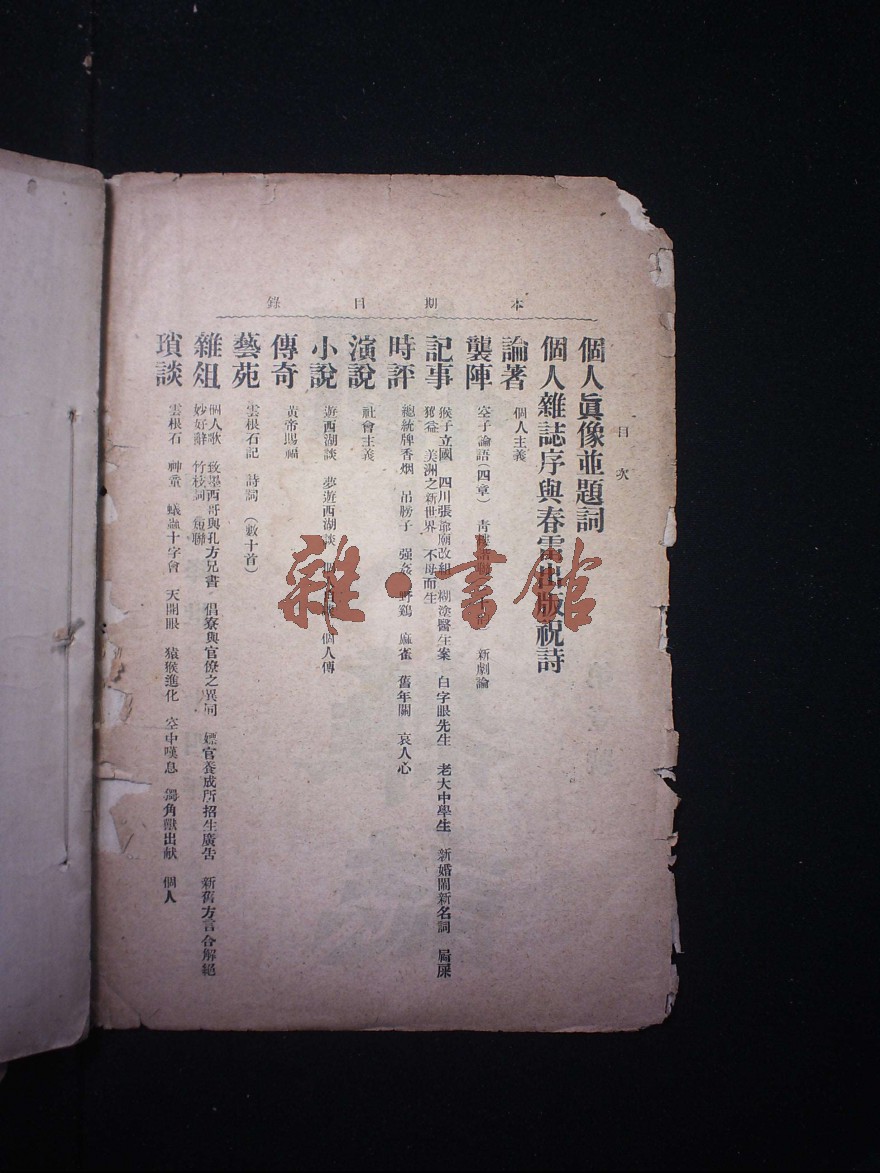 本期目錄
目次
個人眞像並題詞
個人雜誌序與春雷出版祝詩
論著
個人主義
襲陣
空子論語(四章) 新劇論
記事
猴子立國 四川張爺廟改組 糊塗醫生案 白字眼先生 老大中學生 新婚鬧新名詞 屙屎
獲益 美洲之新世界 不母而生
時評
總統牌香烟 吊膀子 强姦 野鷄 麻雀 舊年關 哀人心
演說
社會主義
小說
遊西湖談 夢遊西湖談 個人傳
傳奇
黃帝賜福
藝苑
雲根石記 詩詞(數十首)
雜俎
個人歌 致墨西哥與孔方兄書 倡寮與官僚之異同 嫖官養成所招生廣告 新舊方言合解絕
妙好辭 竹枝詞 聯
瑣談
雲根石 神童 蟻蟲十字會 天開眼 猿猴進化 空中嘆息 獨角獸出献 個人
雜·書館